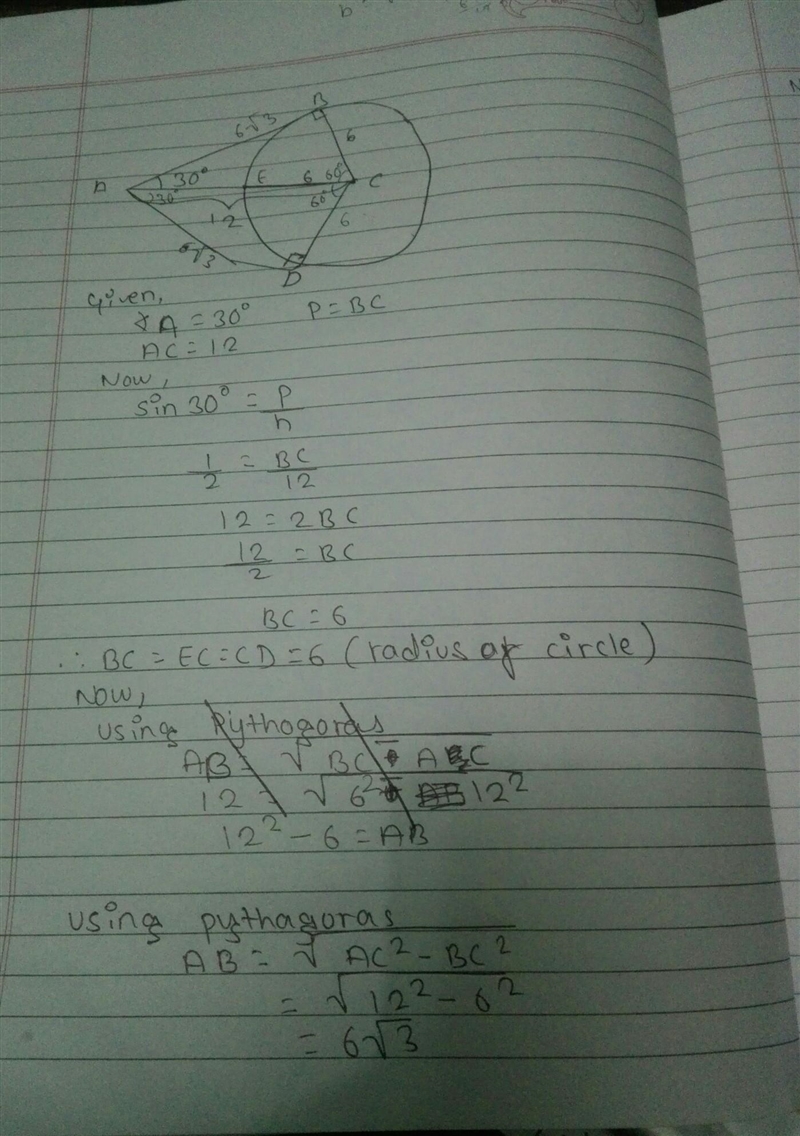 B
6√3
6
A
30°
E
6
60°
C
30°
60°
12
6
6√3
D
Given,
∡A = 30° P = BC
AC = 12
Now,
sin 30° = P/h
1/2 = BC/12
12 = 2BC
12/2 = BC
BC = 6
∴ BC = EC = CD = 6 (radius of circle)
Now,
using Pythogoras
AB = √BC - AC
12 = √6² - 12²
12² - 6 = AB
using pythagoras
AB = √AC² - BC²
= √12² - 6²
= 6√3